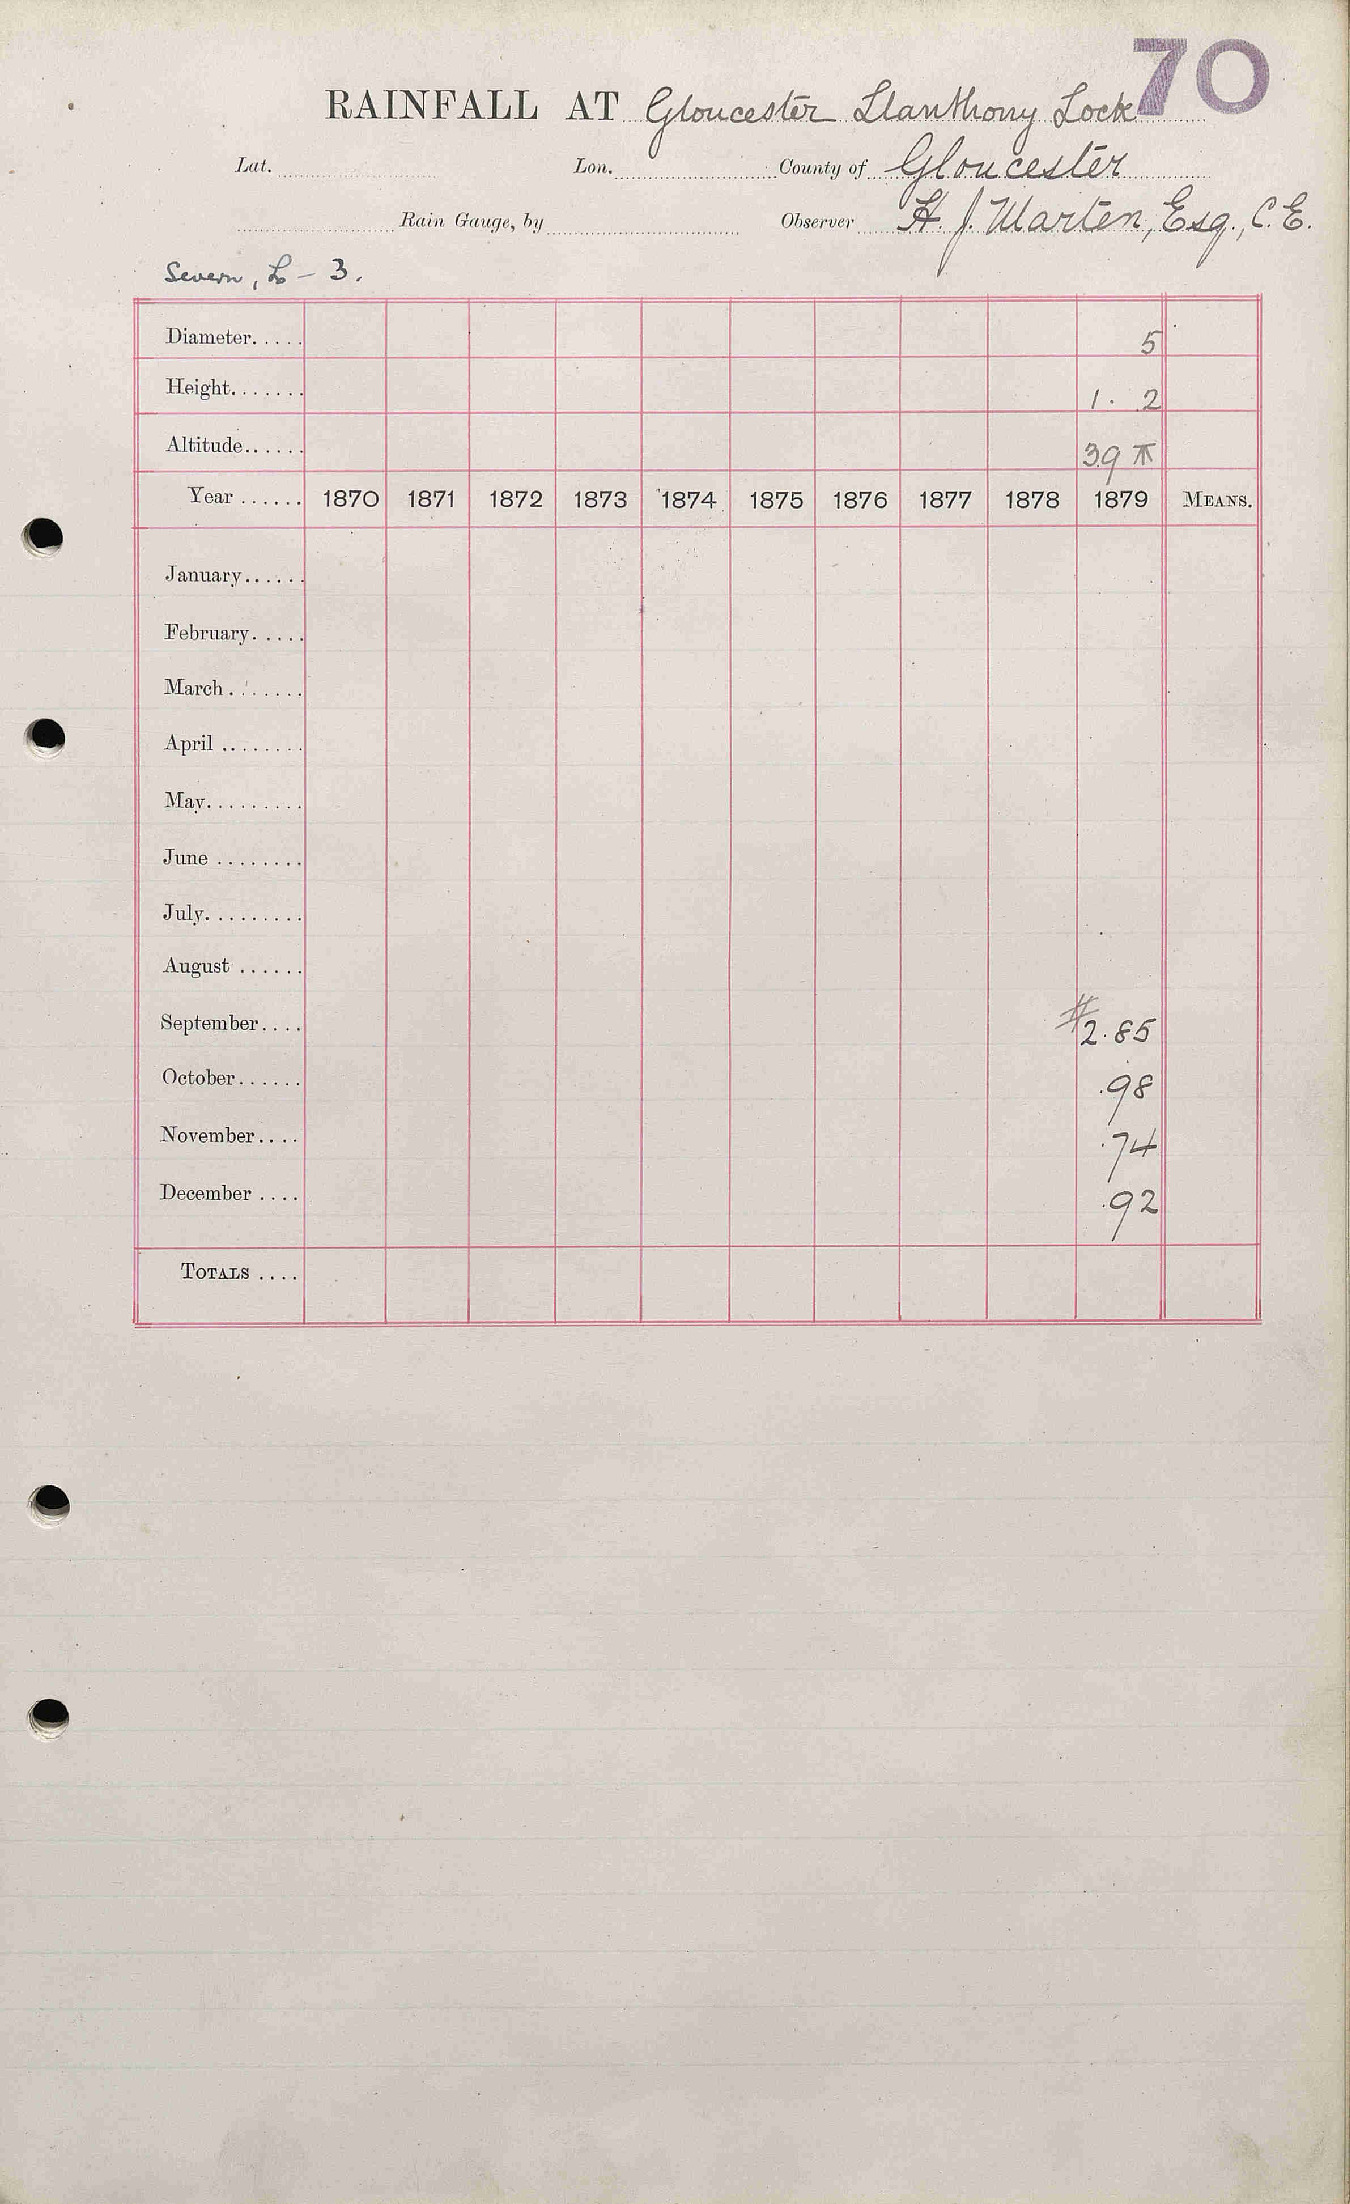 70
RAINFALL AT Gloucester Llanthony Lock
Lat. Lon. County of Gloucester
Rain Gauge, by Observer H. J. Marten, Esq., C.E.
Severn, L - 3.
Diameter..... 5
Height....... 1. 2
Altitude...... 39
Year ...... 1870 1871 1872 1873 1874 1875 1876 1877 1878 1879 MEANS.
January......
February.....
March.......
April ........
May.........
June ........
July.........
August ......
September.... # 2.85
October...... .98
November.... .74
December .... .92
TOTALS ....